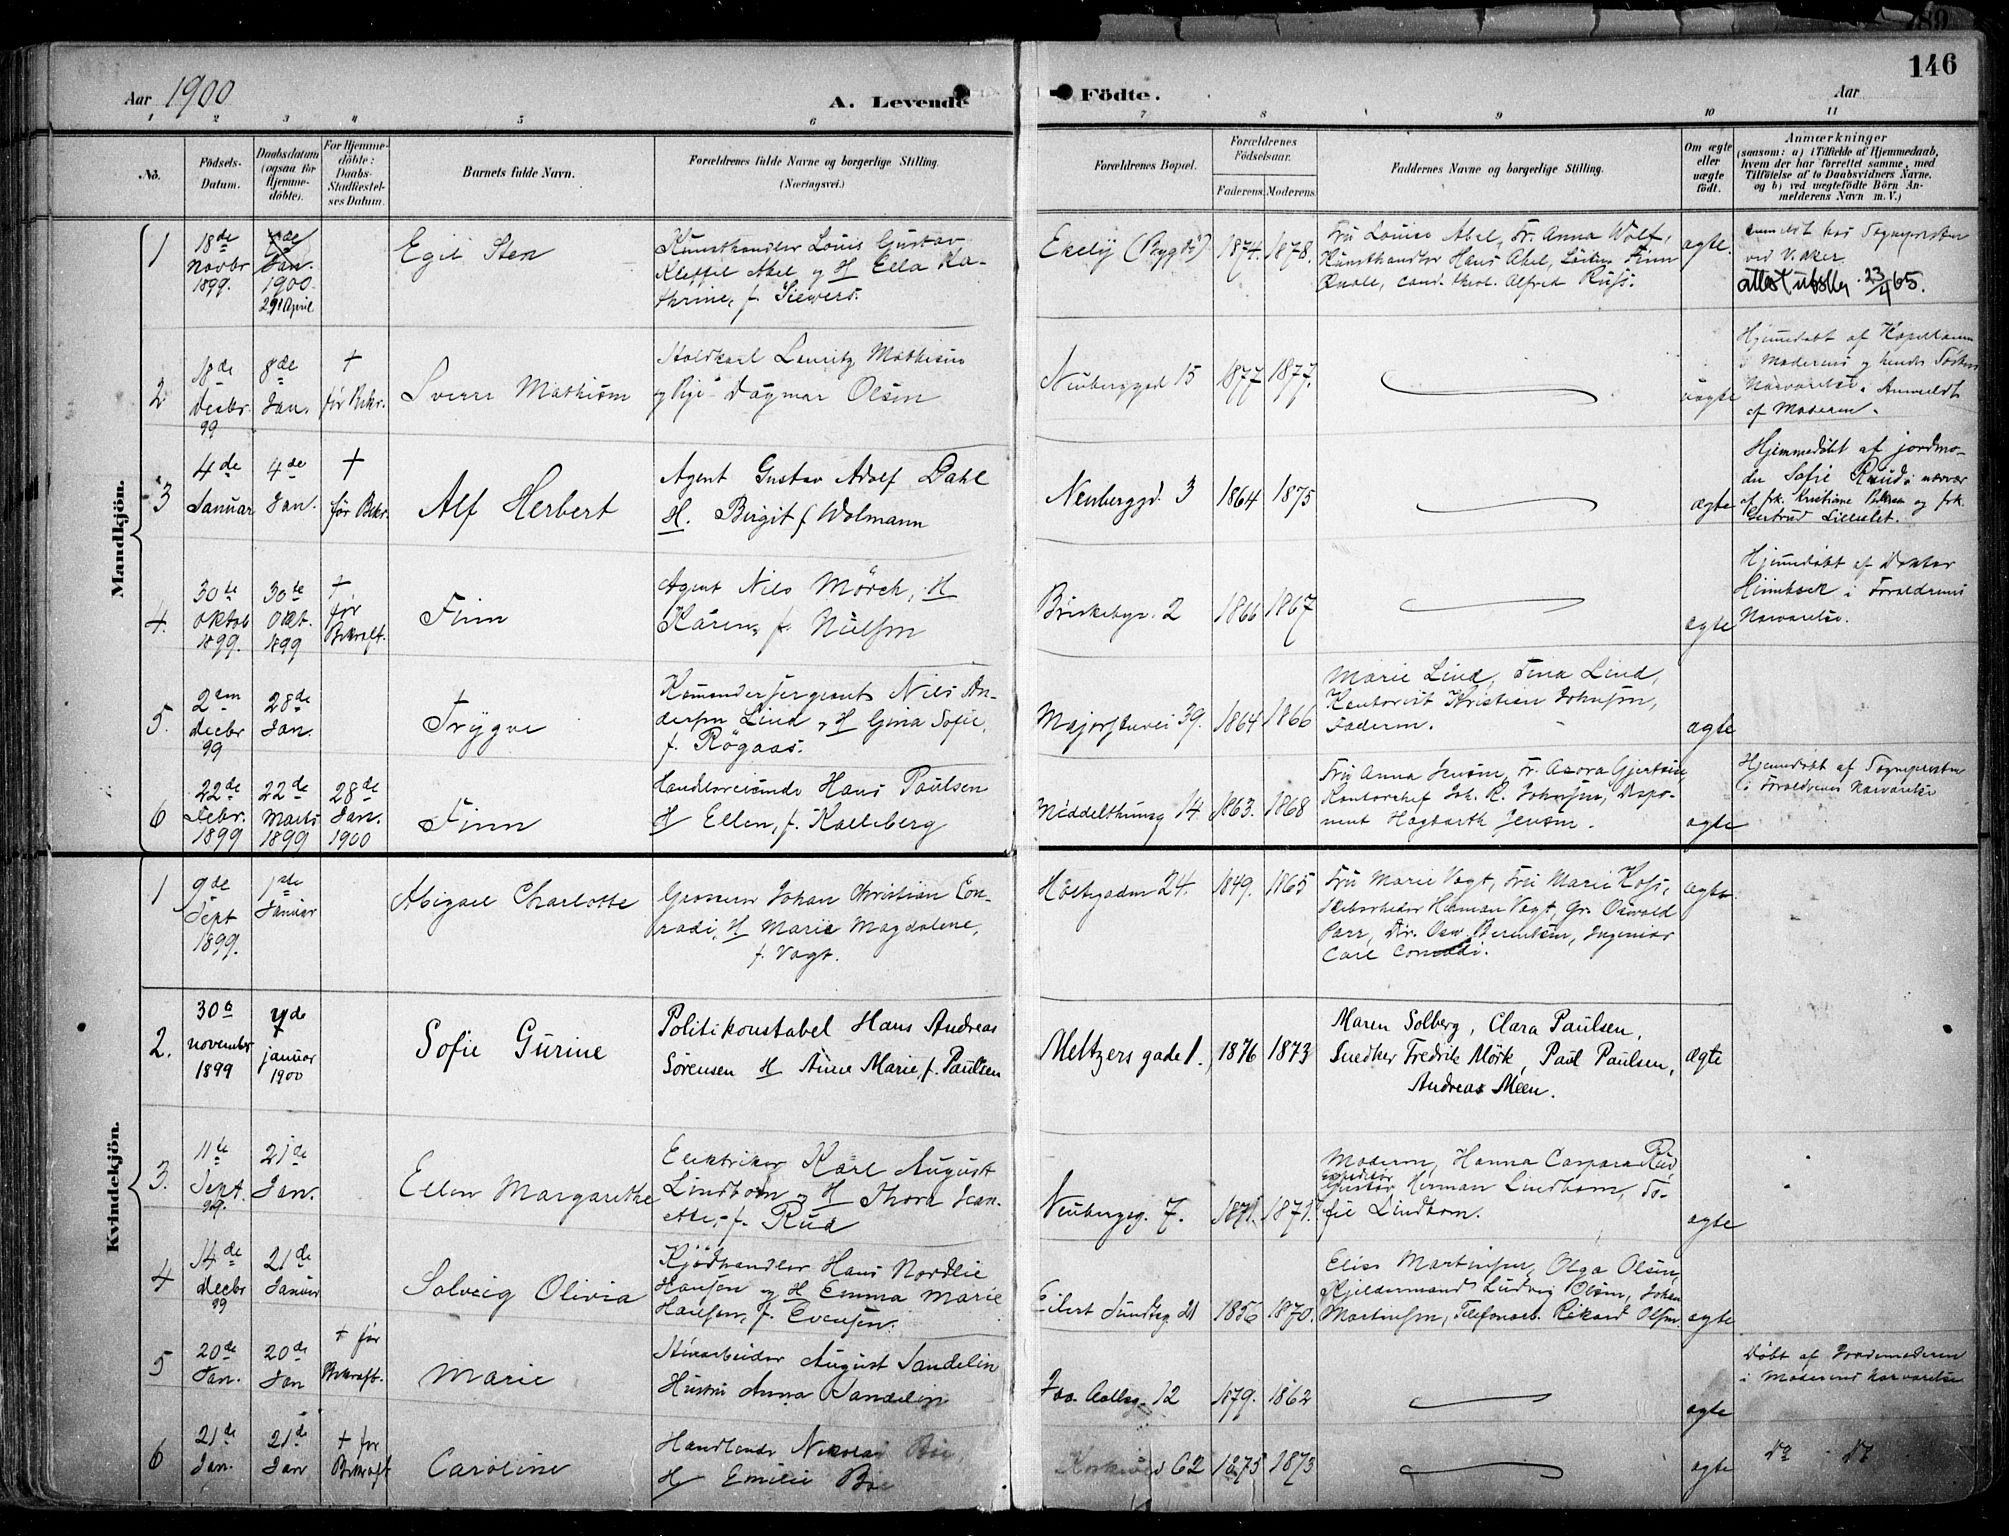 89
146
Aar 1900
A. Levende
Födte.
Aar
1 2 3 4 5 6 7 8 9 10 11
No.
Födsels-Datum.
Daabsdatum (ogsaa for Hjemmedöbte).
For Hjemmedöbte: Daabs-Stadfæstelses Datum.
Barnets fulde Navn.
Forældrenes fulde Navne og borgerlige Stilling. (Næringsvei.)
Forældrenes Bopæl.
Forældrenes Födselsaar.
Faderens. Moderens.
Faddernes Navne og borgerlige Stilling.
Om ægte eller uægte födt.
Anmærkninger
(saasom: a) i Tilfælde af Hjemmedaab,
hvem der har forrettet samme, med
Tilföielse af to Daabsvidners Navne,
og b) ved uægtefödte Börn Anmelderens Navn m. V.)
Mandkjön.
1 18de Novbr 1899. Jan. 1900. 29d April
Egil Sten
Kunsthandler Louis Gustav
Abel og H Ella Kathrine, f. Siewers.
Ekely (Bygdø) 1874. 1878.
Fru Louise Abel, Fr. Anna Wolf,
Kunsthandler Hans Abel, Finn
Qvale, cand. theol. Alfred Russ.
ægte.
anmeldt hos Sognepresten
ved V. Aker.
23/4 65.
2 18de Decbr 99 8de Jan. + før Bekr.
Sverre Mathisen
Staldkarl Lauritz Mathisen
og Pige Dagmar Olsen
Neuberggd 15 1877 1877.
uægte
Hjemmedøbt af Kapellanen
i Moderens og hendes Søsters
Nærværelse. Anmeldt
af Moderen.
3 4de Januar 4de Jan. + før Bekr.
Alf Herbert
Agent Gustav Adolf Dahl
H. Birgit f Wolmann
Neuberggd. 3 1864 1875
ægte
Hjemmedøbt af jordmoder
Sofie Ruud i nærvær
af frk. Kristiane og frk.
Gertrud
4. 30te Oktob 1899. 30te Okt. 1899 + før Bekraft.
Finn
Agent Nils Mörch, H
Karen, f. Nielsen
Briskebyv. 2 1866 1867
ægte
Hjemmedøbt af Doktor
Heimbeck i Forældrenes
Nærværelse.
5. 2den Decbr 99 28de Jan.
Trygve
Kommandersergeant Nils Andersen
Lind og H Gina Sofie,
f. Røgaas.
Majorstuvei 39. 1864 1866
Marie Lind, Tina Lind,
Kontorist Kristian Johnsen,
Faderen.
ægte
6 22de Febr. 1899 22de Marts 1899 28de Jan. 1900
Finn
Handelsreisende Hans Paulsen
H Ellen, f. Kalleberg
Middelthunsg 14. 1863. 1868
Fru Anna Jensen, Fr. Asora Gjertsen
Kontorchef Joh. R. Johnsen, Disponent
Hagbarth Jensen.
ægte
Hjemmedøbt af Sognepresten
i Forældrenes Nærværelse
Kvindekjön.
1 9de Sept 1899. 1ste Januar
Abigael Charlotte
Grosserer Johan Christian Conradi,
H Marie Magdalene,
f. Vogt.
Holtegaden 24. 1849. 1865
Fru Marie Vogt, Fru Marie Koss,
Skibsreder Herman Vogt, Gr. Oswald
Parr, Dir. Osw. Berentsen, Ingeniør
Carl Conradi.
ægte.
2. 30te november 1899 7de januar 1900
Sofie Gurine
Politikonstabel Hans Andreas
Sörensen H Anne Marie, f. Paulsen
Meltzers gade 1. 1876 1873
Maren Solberg, Clara Paulsen,
Snedker Fredrik Mörk, Paul Paulsen,
Andreas Meen.
ægte
3. 11te Sept. 21de Jan.
Ellen Margarethe
Elektriker Karl August
Lindbom og H Thora Jeanette,
f. Rud
Neubergg. 7. 1871. 1871.
Moderen, Hanna Caspara Rud,
Gustav Herman Lindbom, Sofie
Lindbom.
ægte
4 14de Decbr 99 21de Januar
Solveig Olivia
Kjødhandler Hans Nordlie
Hansen og H Emma Marie
Hansen, f. Evensen.
Eilert Sundtsg 21 1856 1870.
Elise Martinsen, Olga Olsen,
Ludvig Olsen, Johan
Martinsen, Telefonarb. Rikard Olsen
ægte
5 20de Jan. 20de Jan + før Bekraft.
Marie
August Sandelin
Hustru Anna Sandelin
12 1879. 1862
ægte
Døbt af Jordemoderen
i Moderens Nærværelse
6 21de Jan. 21de Jan + før Bekraft
Caroline
Handlende Nikolai Bie,
H Emilie Bie
62 1875 1873
ægte
Do Do